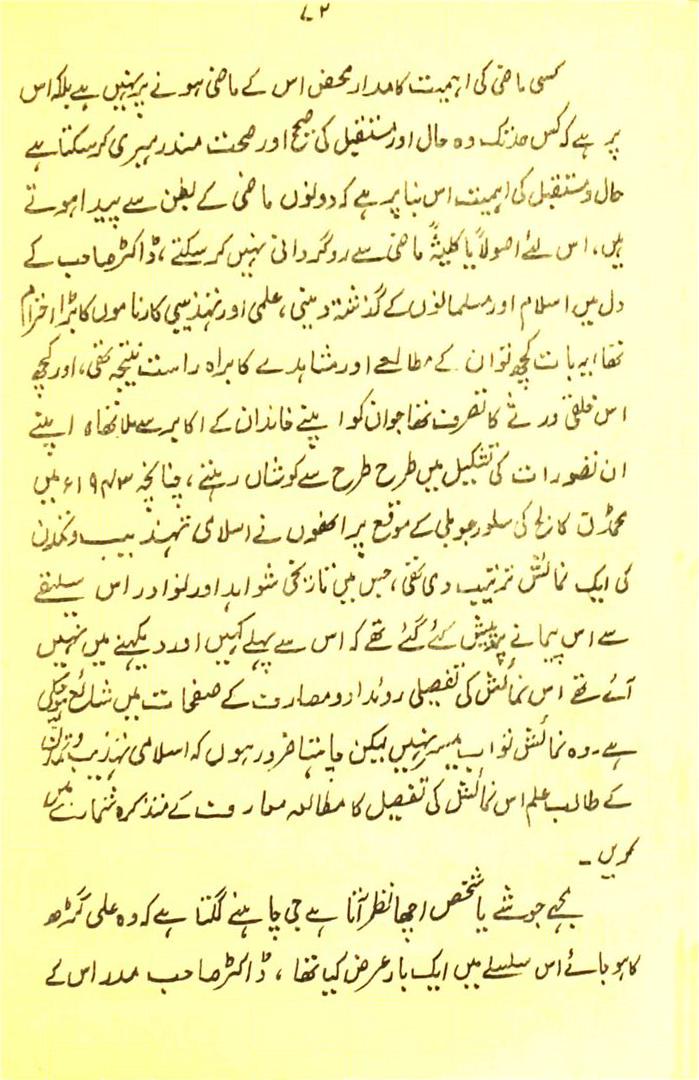 ۷۲
کسی ماضی کی اہمیت کا مدار محض اس کے ماضی ہونے پر نہیں ہے بلکہ اس
پر ہے کہ کس حد تک وہ حال اور مستقبل کی صحیح اور صحت مند رہبری کر سکتا ہے
حال و مستقبل کی اہمیت اس بنا پر ہے کہ دونوں ماضی کے بطن سے پیدا ہوتے
ہیں، اس لئے اصولاً یا کلیتہً ماضی سے روگردانی نہیں کر سکتے، ڈاکٹر صاحب کے
دل میں اسلام اور مسلمانوں کے گذشتہ دینی، علمی اور تہذیبی کارناموں کا بڑا احترام
تھا، یہ بات کچھ تو ان کے مطالعے اور مشاہدے کا براہ راست نتیجہ تھی، اور کچھ
اس خلقی ورثے کا تصرف تھا جو ان کو اپنے خاندان کے اکابر سے ملا تھا، وہ اپنے
ان تصورات کی تشکیل میں طرح طرح سے کوشاں رہتے، چنانچہ ۱۹۴۳ء میں
محمڈن کالج کی سلور جوبلی کے موقع پر انھوں نے اسلامی تہذیب و تمدن
کی ایک نمائش ترتیب دی تھی، جس میں تاریخی شواہد اور نوادر اس سلیقے
سے اس پیمانے پر پیش کئے گئے تھے کہ اس سے پہلے کہیں اور دیکھنے میں نہیں
آئے تھے اس نمائش کی تفصیلی روئداد و معارف کے صفحات میں شائع ہو چکی
ہے۔ وہ نمائش تو اب میسر نہیں لیکن چاہتا ضرور ہوں کہ اسلامی تہذیب و تمدن
کے طالب علم اس نمائش کی تفصیل کا مطالعہ معارف کے متذکرہ شمارے میں
کریں۔
مجھے جو شئے یا شخص اچھا نظر آتا ہے جی چاہنے لگتا ہے کہ وہ علی گڑھ
کا ہو جائے اس سلسلے میں ایک بار عرض کیا تھا، ڈاکٹر صاحب مدراس کے